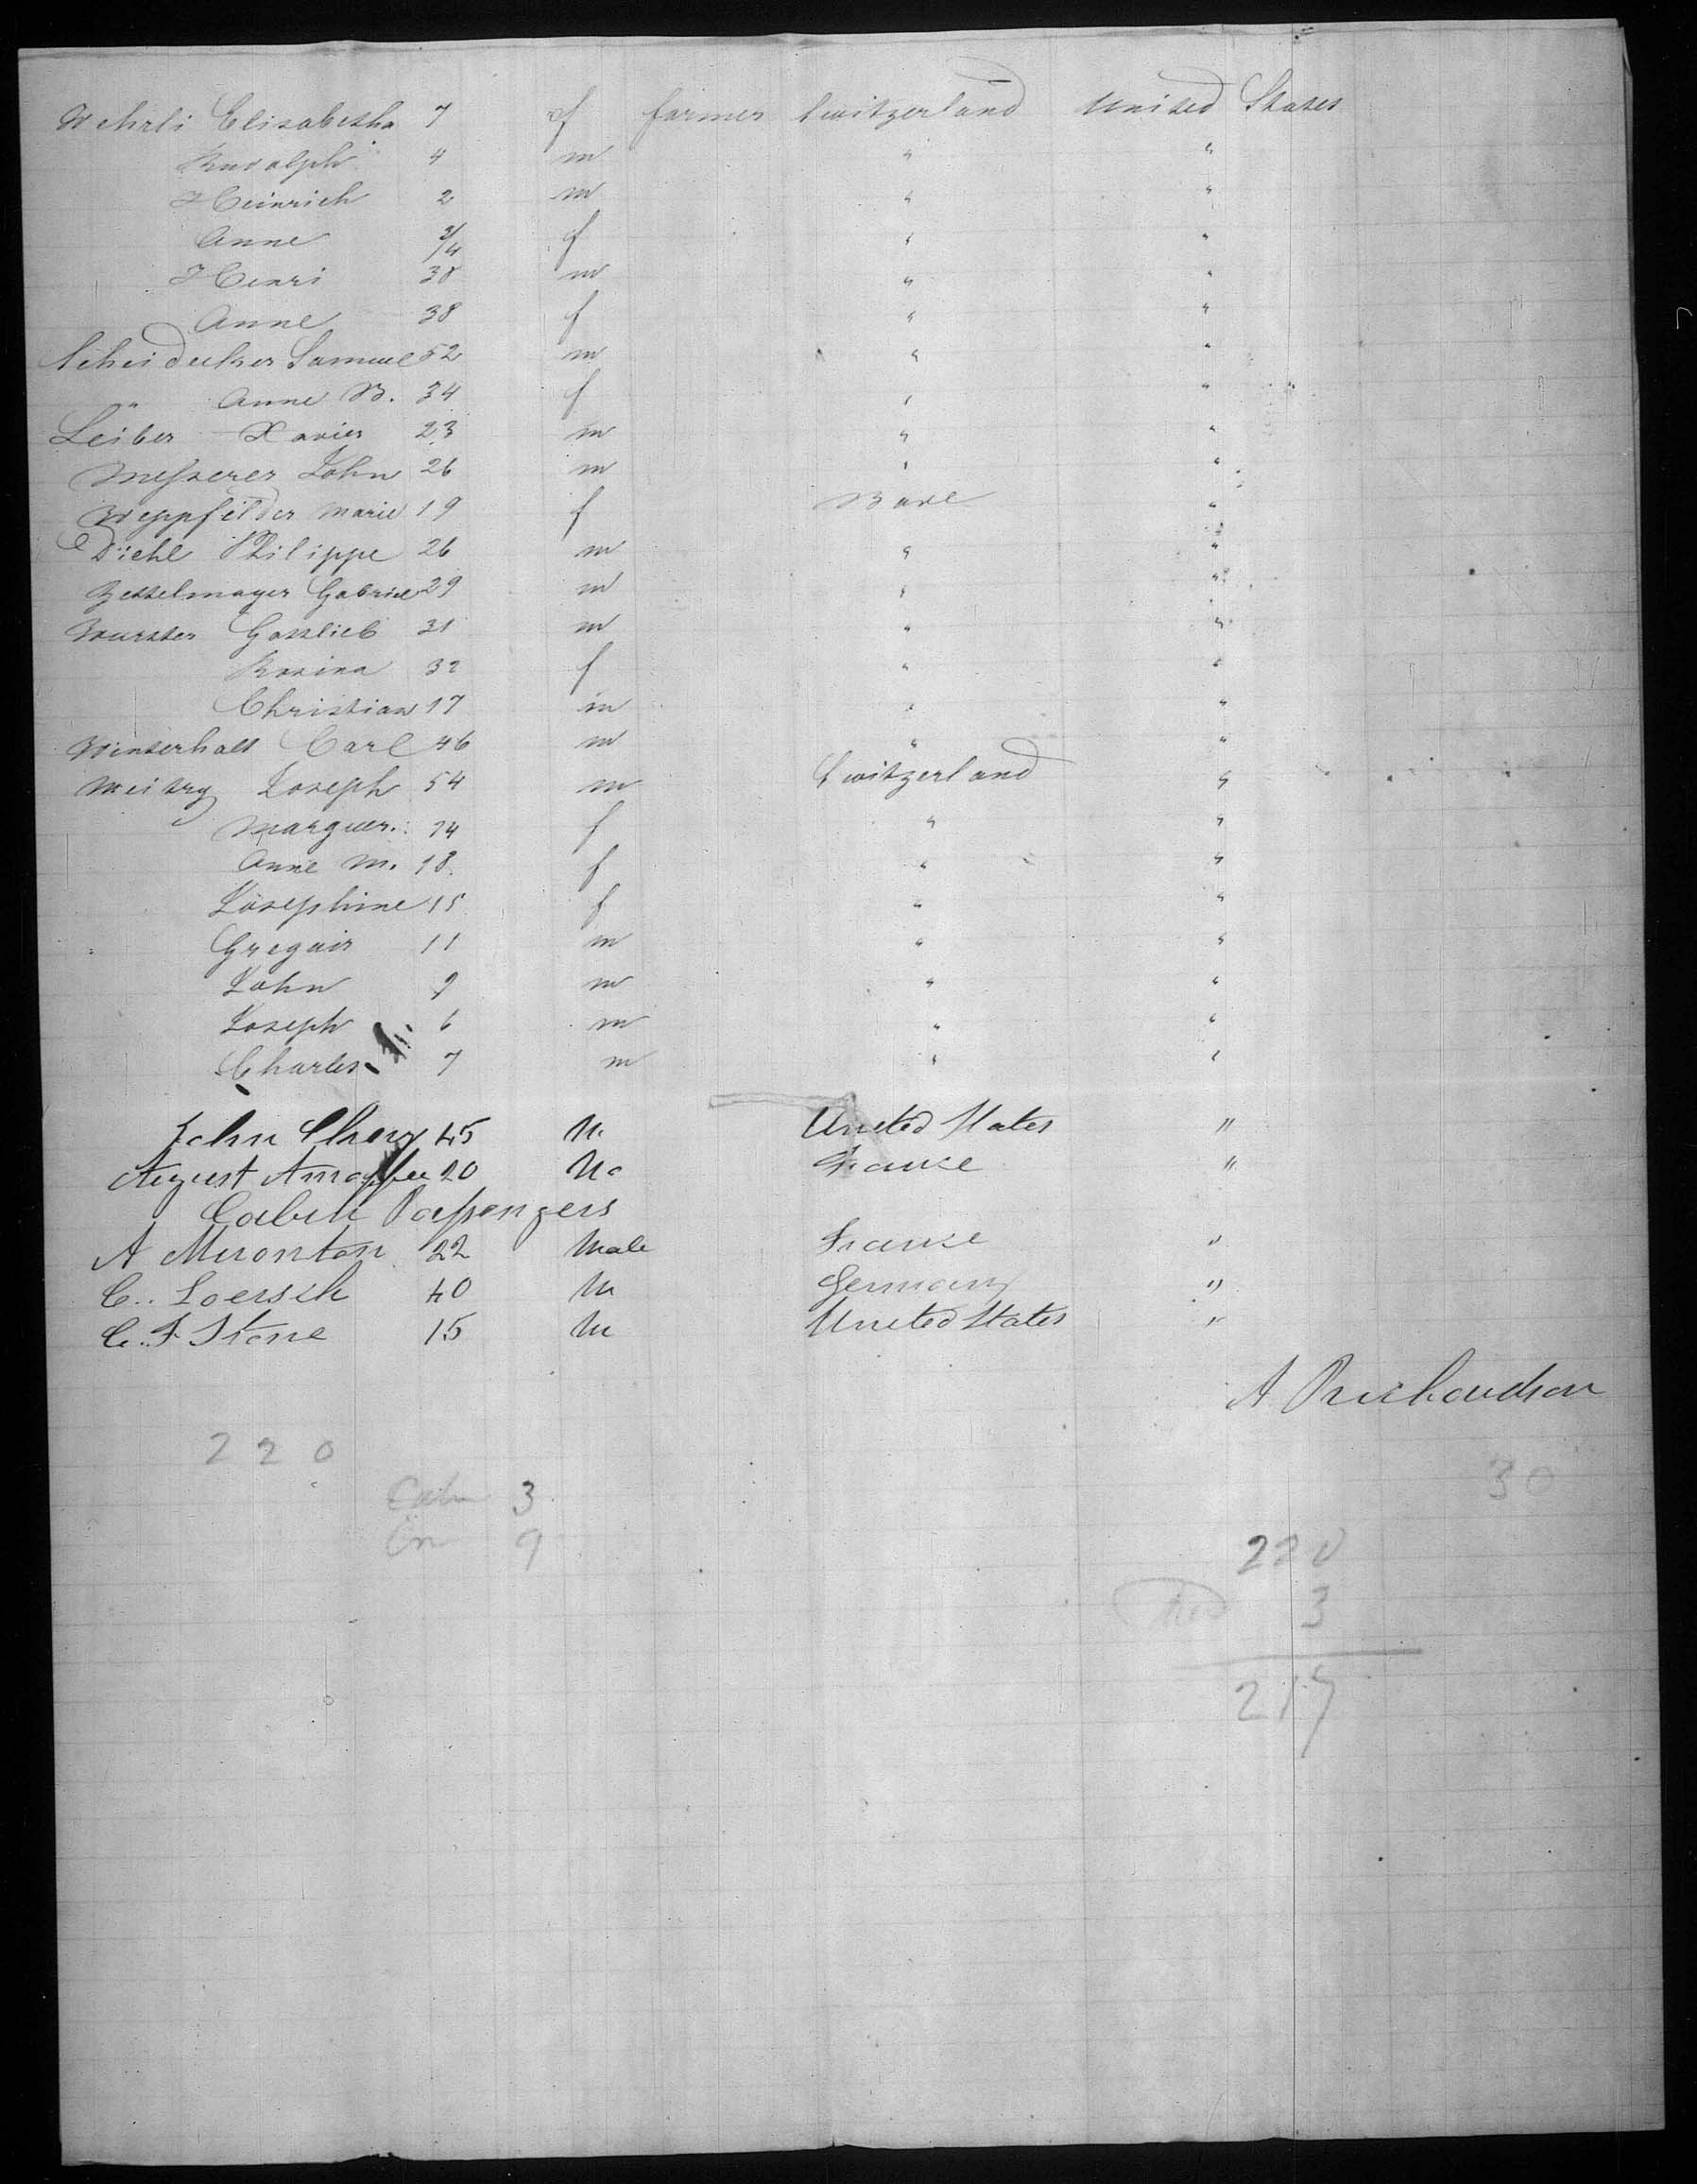 Wehrli Elisabetha 7 f farmer Switzerland United States
Rudolph 4 m " "
Heinrich 2 m " "
Anne 3/4 f " "
Henri 38 m " "
Anne 38 f " "
Scheidecker Samuel 52 m " "
" Anne B. 34 f " " "
Leiber Xavier 23 m " "
Messerer John 26 m " "
Weppfelder Marie 19 f "
Diehl Philippe 26 m " "
Zettelmayer Gabriel 29 m " "
Wurster Gottlieb 31 m " "
Rosina 32 f " "
Christian 17 m " "
Winterhalt Carl 46 m " "
Joseph 54 m Switzerland "
Marguer. 14 f " "
Anne M. 18 f " "
Josephine 15 f " "
Gregoir 11 m " "
John 9 m " "
Joseph 6 m " "
Charles 7 m " "
John 45 M United States "
August 20 M France "
Cabin Passengers
A 22 Male France "
C. Loersch 40 M Germany "
C. F. Stone 15 M United States "
A Richardson
220
30
Cabin 3
9
220
3
217